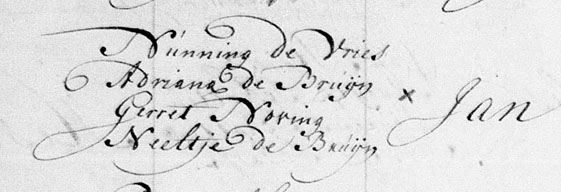 Núnning de Vries
Adriana de Bruÿn × Jan
Gerret Noving
Neeltje de Bruÿn